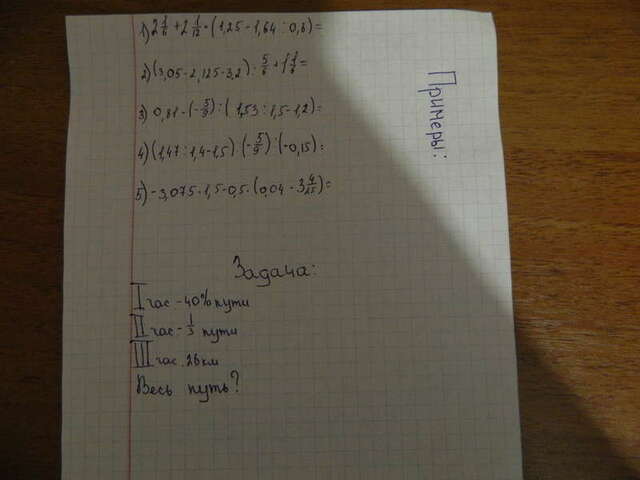 Примеры:
1) 2 1/6 + 2 1/12 · (1,25 - 1,64 : 0,6) =
2) (3,05 - 2,125 - 3,2) : 5/6 + 1 1/6 =
3) 0,81 · (- 5/9) : (1,53 : 1,5 - 1,2) =
4) (1,47 : 1,4 - 1,5) · (- 5/9) : (-0,15) =
5) -3,075 · 1,5 - 0,5 · (0,04 - 3 4/25) =
Задача:
I час - 40% пути
II час - 1/3 пути
III час. 26 км
Весь путь?